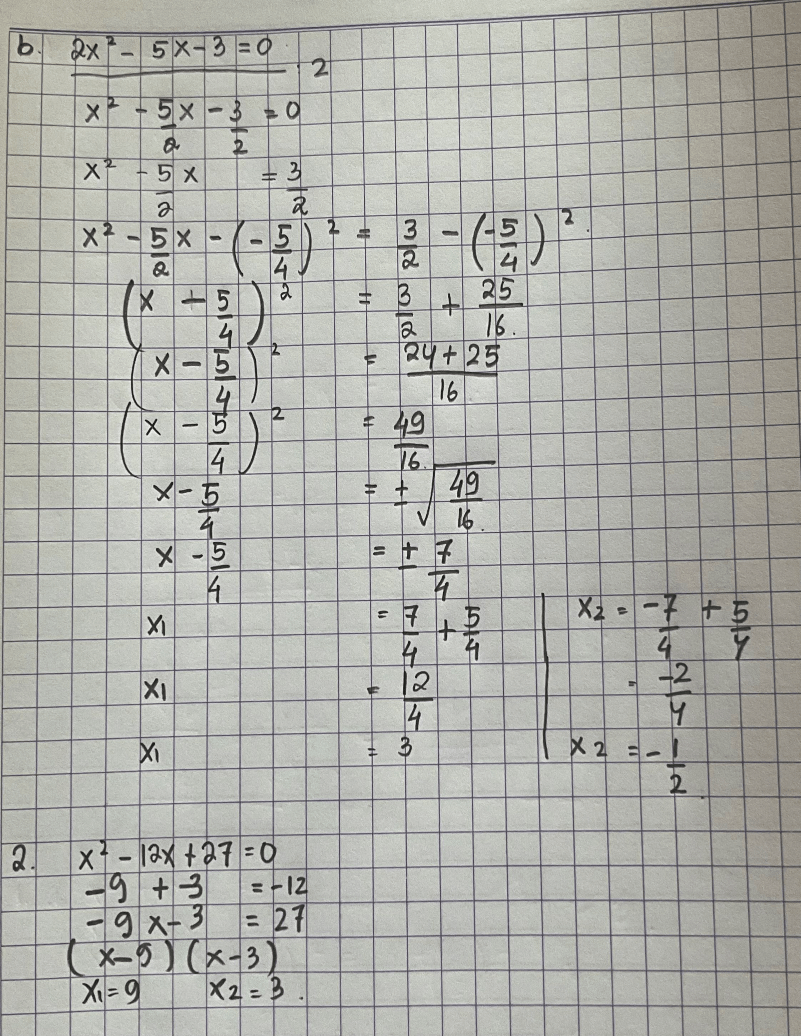 b. 2x² - 5x - 3 = 0 . 2
x² - 5/2 x - 3/2 = 0
x² - 5/2 x = 3/2
x² - 5/2 x - (- 5/4)² = 3/2 - (-5/4)²
(x - 5/4)² = 3/2 + 25/16.
(x - 5/4)² = 24 + 25/16
(x - 5/4)² = 49/16.
x - 5/4 = ± √49/16.
x - 5/4 = ± 7/4
x₁ = 7/4 + 5/4
x₁ = 12/4
x₁ = 3
x₂ = -7/4 + 5/4
= -2/4
x₂ = - 1/2.
2. x² - 12x + 27 = 0
-9 + -3 = -12
-9 x -3 = 27
(x-9) (x-3)
x₁ = 9 x₂ = 3.